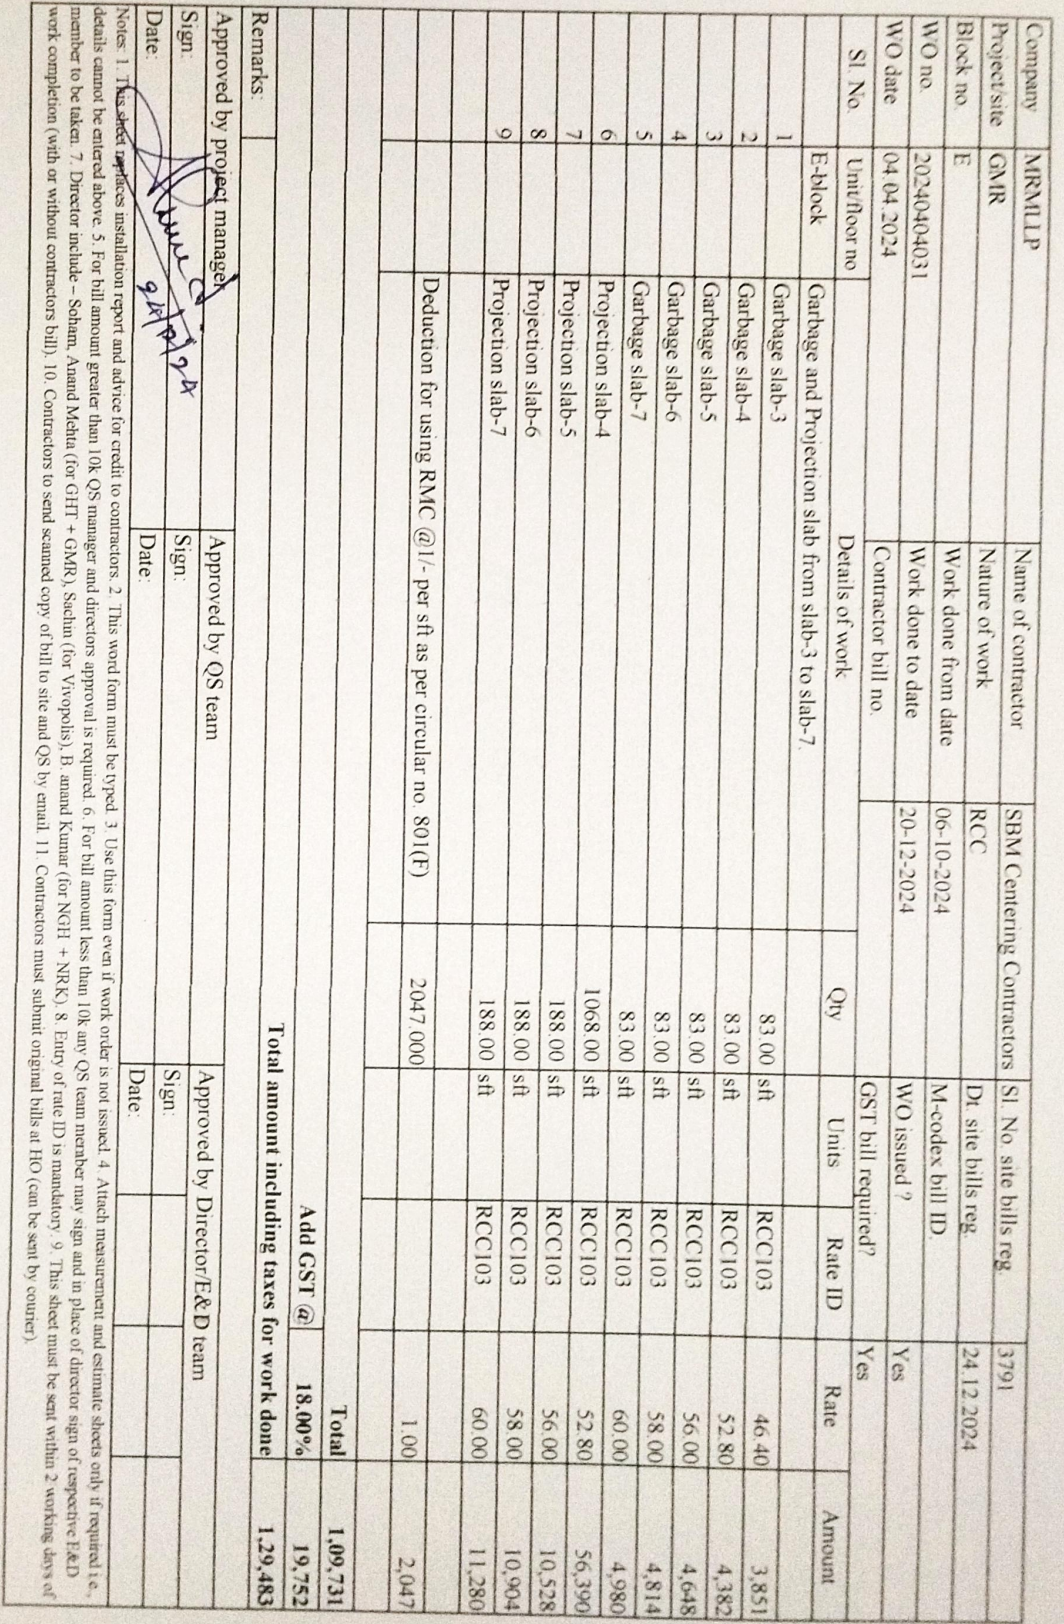 Company MRMLLP Name of contractor SBM Centering Contractors Sl. No. site bills reg. 3791
Project/site GMR Nature of work RCC Dt. site bills reg. 24.12.2024
Block no. E Work done from date 06-10-2024 M-codex bill ID.
WO no. 20240404031 Work done to date 20-12-2024 WO issued ? Yes
WO date 04.04.2024 Contractor bill no. GST bill required? Yes
Sl. No. Unit/floor no Details of work Qty Units Rate ID Rate Amount
E-block Garbage and Projection slab from slab-3 to slab-7.
1 Garbage slab-3 83.00 sft RCC103 46.40 3,851
2 Garbage slab-4 83.00 sft RCC103 52.80 4,382
3 Garbage slab-5 83.00 sft RCC103 56.00 4,648
4 Garbage slab-6 83.00 sft RCC103 58.00 4,814
5 Garbage slab-7 83.00 sft RCC103 60.00 4,980
6 Projection slab-4 1068.00 sft RCC103 52.80 56,390
7 Projection slab-5 188.00 sft RCC103 56.00 10,528
8 Projection slab-6 188.00 sft RCC103 58.00 10,904
9 Projection slab-7 188.00 sft RCC103 60.00 11,280
Deduction for using RMC @1/- per sft as per circular no. 801(F) 2047.000 1.00 2,047
Total 1,09,731
Add GST @ 18.00% 19,752
Total amount including taxes for work done 1,29,483
Remarks:
Approved by project manager Approved by QS team Approved by Director/E&D team
Sign: Sign: Sign:
Date: Date: Date:
Notes: 1. This sheet replaces installation report and advice for credit to contractors. 2. This word form must be typed. 3. Use this form even if work order is not issued. 4. Attach measurement and estimate sheets only if required i.e.,
details cannot be entered above. 5. For bill amount greater than 10k QS manager and directors approval is required. 6. For bill amount less than 10k any QS team member may sign and in place of director sign of respective E&D
member to be taken. 7. Director include – Soham, Anand Mehta (for GHT + GMR), Sachin (for Vivopolis), B. anand Kumar (for NGH + NRK). 8. Entry of rate ID is mandatory. 9. This sheet must be sent within 2 working days of
work completion (with or without contractors bill). 10. Contractors to send scanned copy of bill to site and QS by email. 11. Contractors must submit original bills at HO (can be sent by courier).